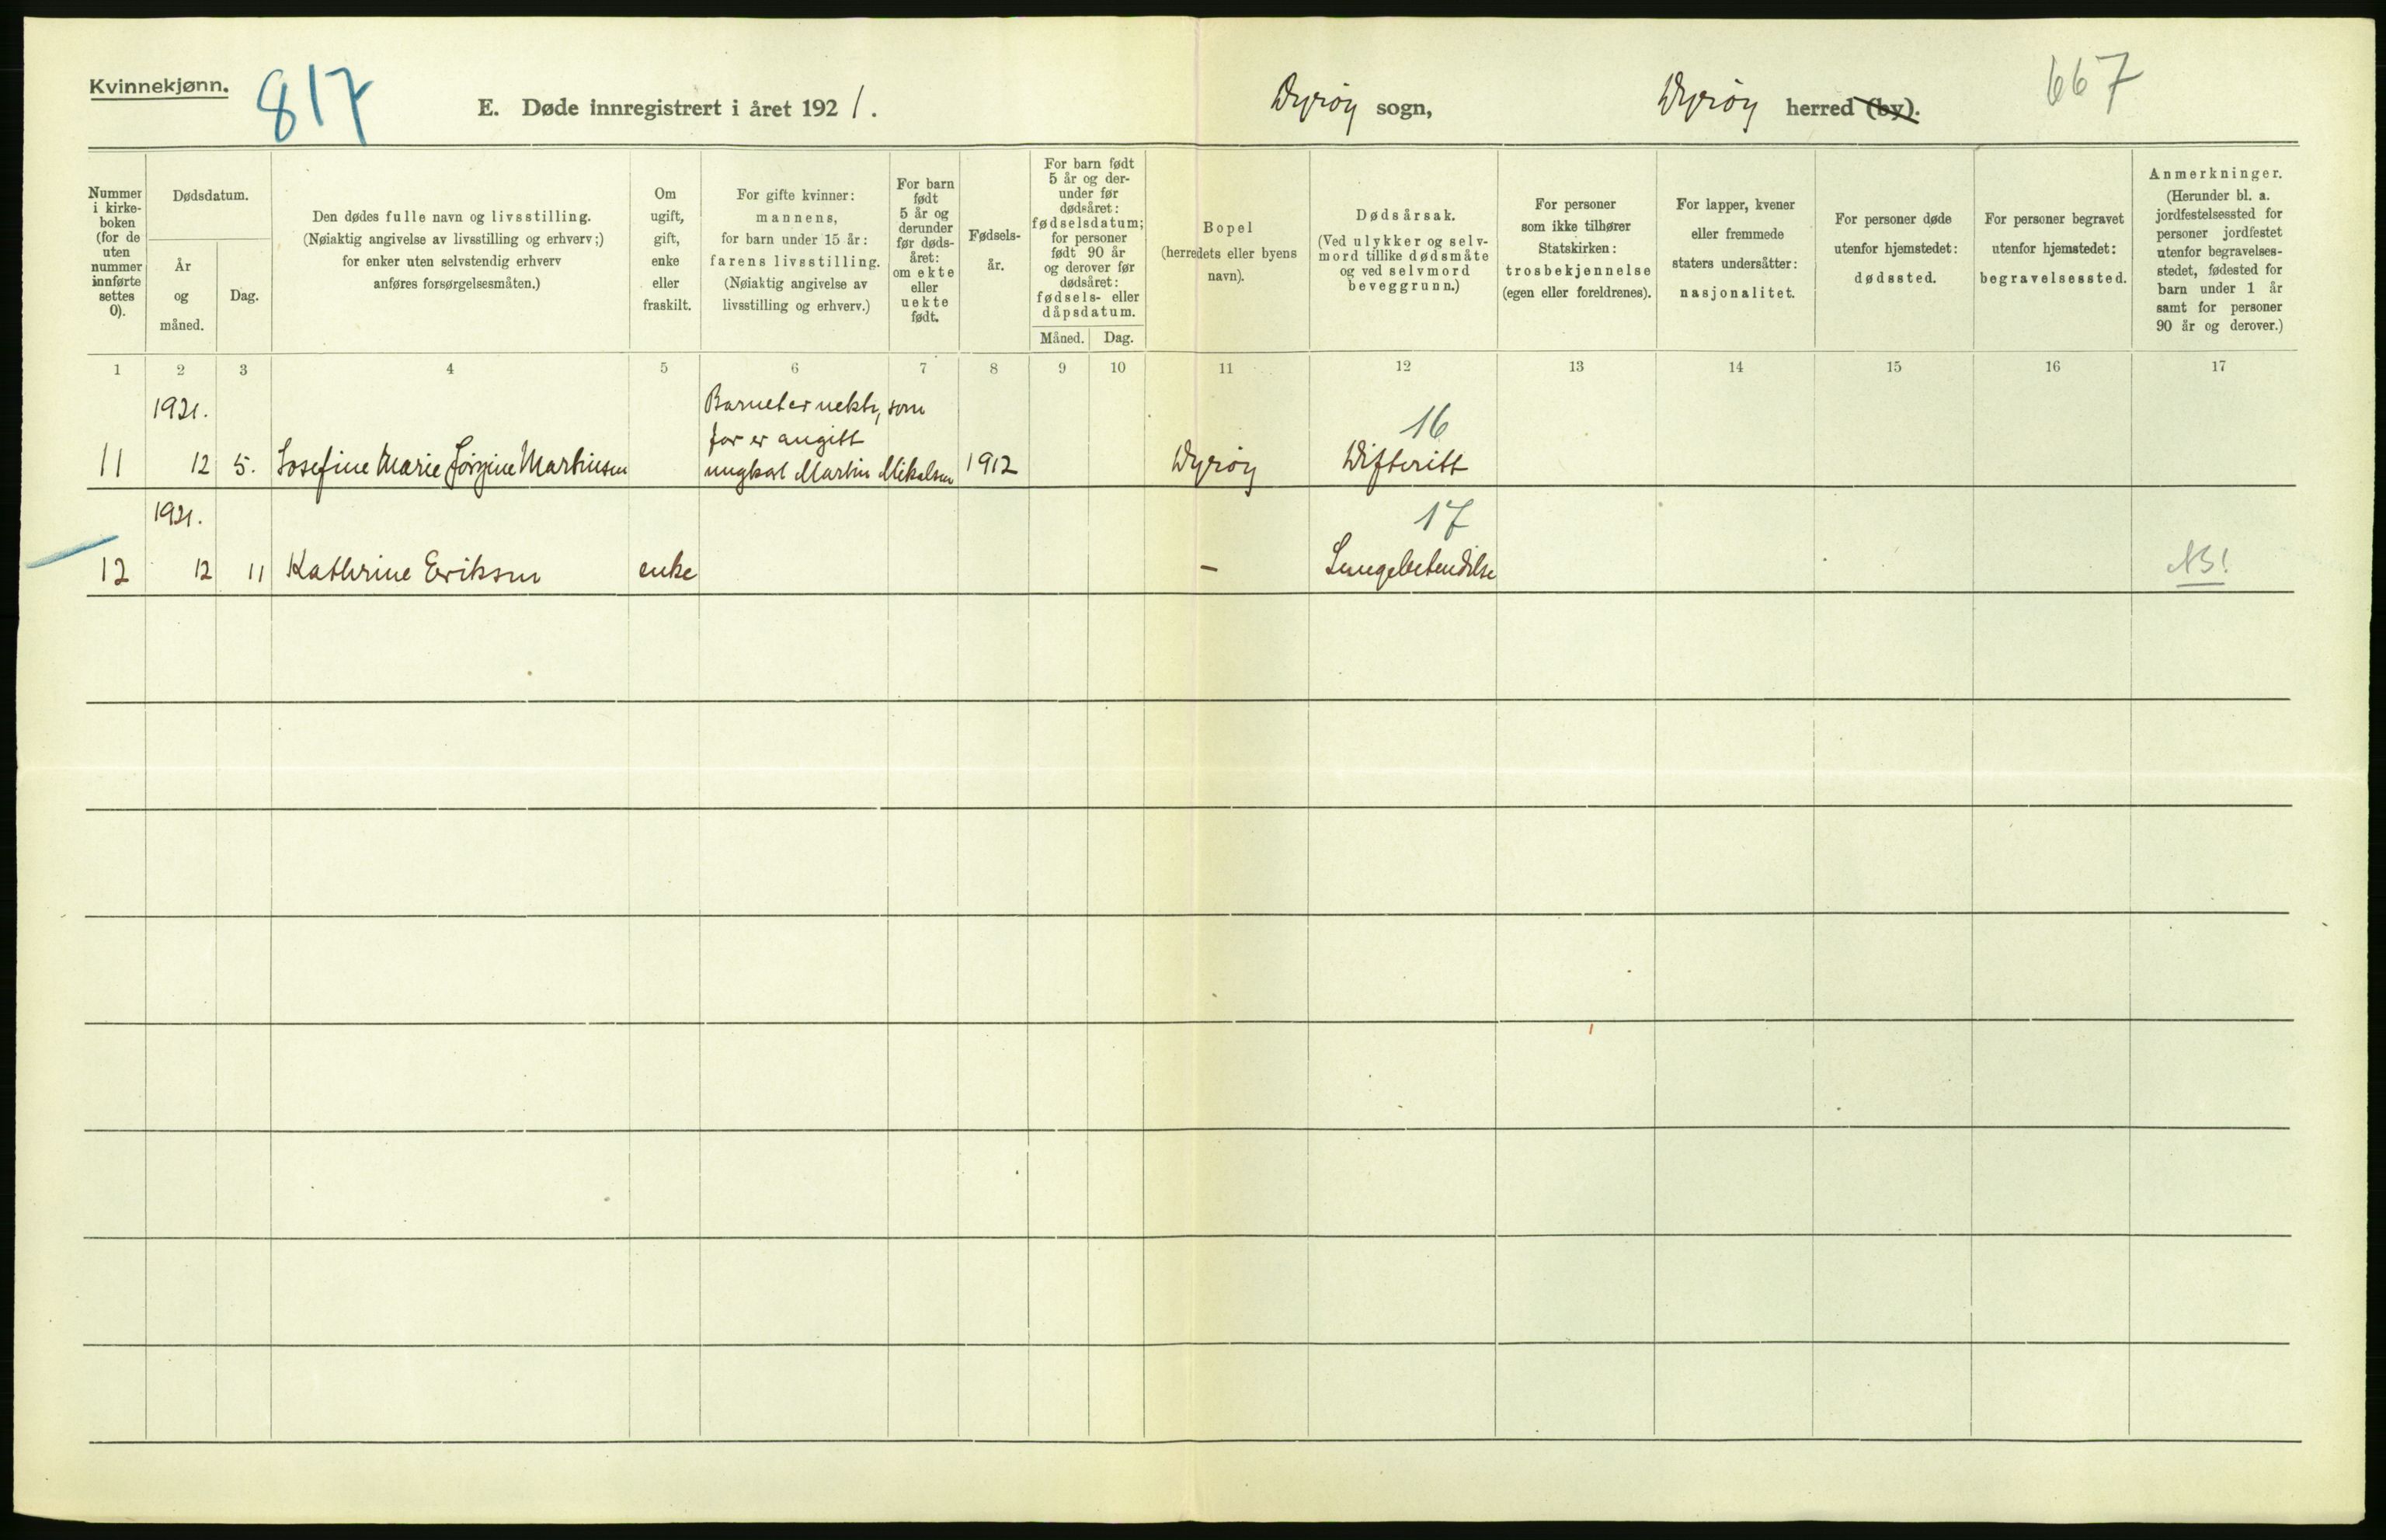 Kvinnekjønn.
817
E. Døde innregistrert i året 1921.
Dyrøy sogn,
Dyrøy herred (by).
667
Nummer
i kirke-
boken
(for de
uten
nummer
innførte
settes
0).
Dødsdatum.
År
og
måned.
Dag.
Den dødes fulle navn og livsstilling.
(Nøiaktig angivelse av livsstilling og erhverv;)
for enker uten selvstendig erhverv
anføres forsørgelsesmåten.)
Om
ugift,
gift,
enke
eller
fraskilt.
For gifte kvinner:
mannens,
for barn under 15 år:
farens livsstilling.
(Nøiaktig angivelse av
livsstilling og erhverv.)
For barn
født
5 år og
derunder
før døds-
året:
om ekte
eller
uekte
født.
Fødsels-
år.
For barn født
5 år og der-
under før
dødsåret:
fødselsdatum;
for personer
født 90 år
og derover før
dødsåret:
fødsels- eller
dåpsdatum.
Måned.
Dag.
Bopel
(herredets eller byens
navn).
Dødsårsak.
(Ved ulykker og selv-
mord tillike dødsmåte
og ved selvmord
beveggrunn.)
For personer
som ikke tilhører
Statskirken:
trosbekjennelse
(egen eller foreldrenes).
For lapper, kvener
eller fremmede
staters undersåtter:
nasjonalitet.
For personer døde
utenfor hjemstedet:
dødssted.
For personer begravet
utenfor hjemstedet:
begravelsessted.
Anmerkninger.
(Herunder bl. a.
jordfestelsessted for
personer jordfestet
utenfor begravelses-
stedet, fødested for
barn under 1 år
samt for personer
90 år og derover.)
1 2 3 4 5 6 7 8 9 10 11 12 13 14 15 16 17
1921.
Barnet er uekte, som
far er angitt
16
11 12 5. Josefine Marie Jørgine Martinsen ungkar Martin Mikalsen 1912 Dyrøy Difteritt
1921.
17
12 12 11 Kathrine Eriksen enke – Lungebetendelse NB!